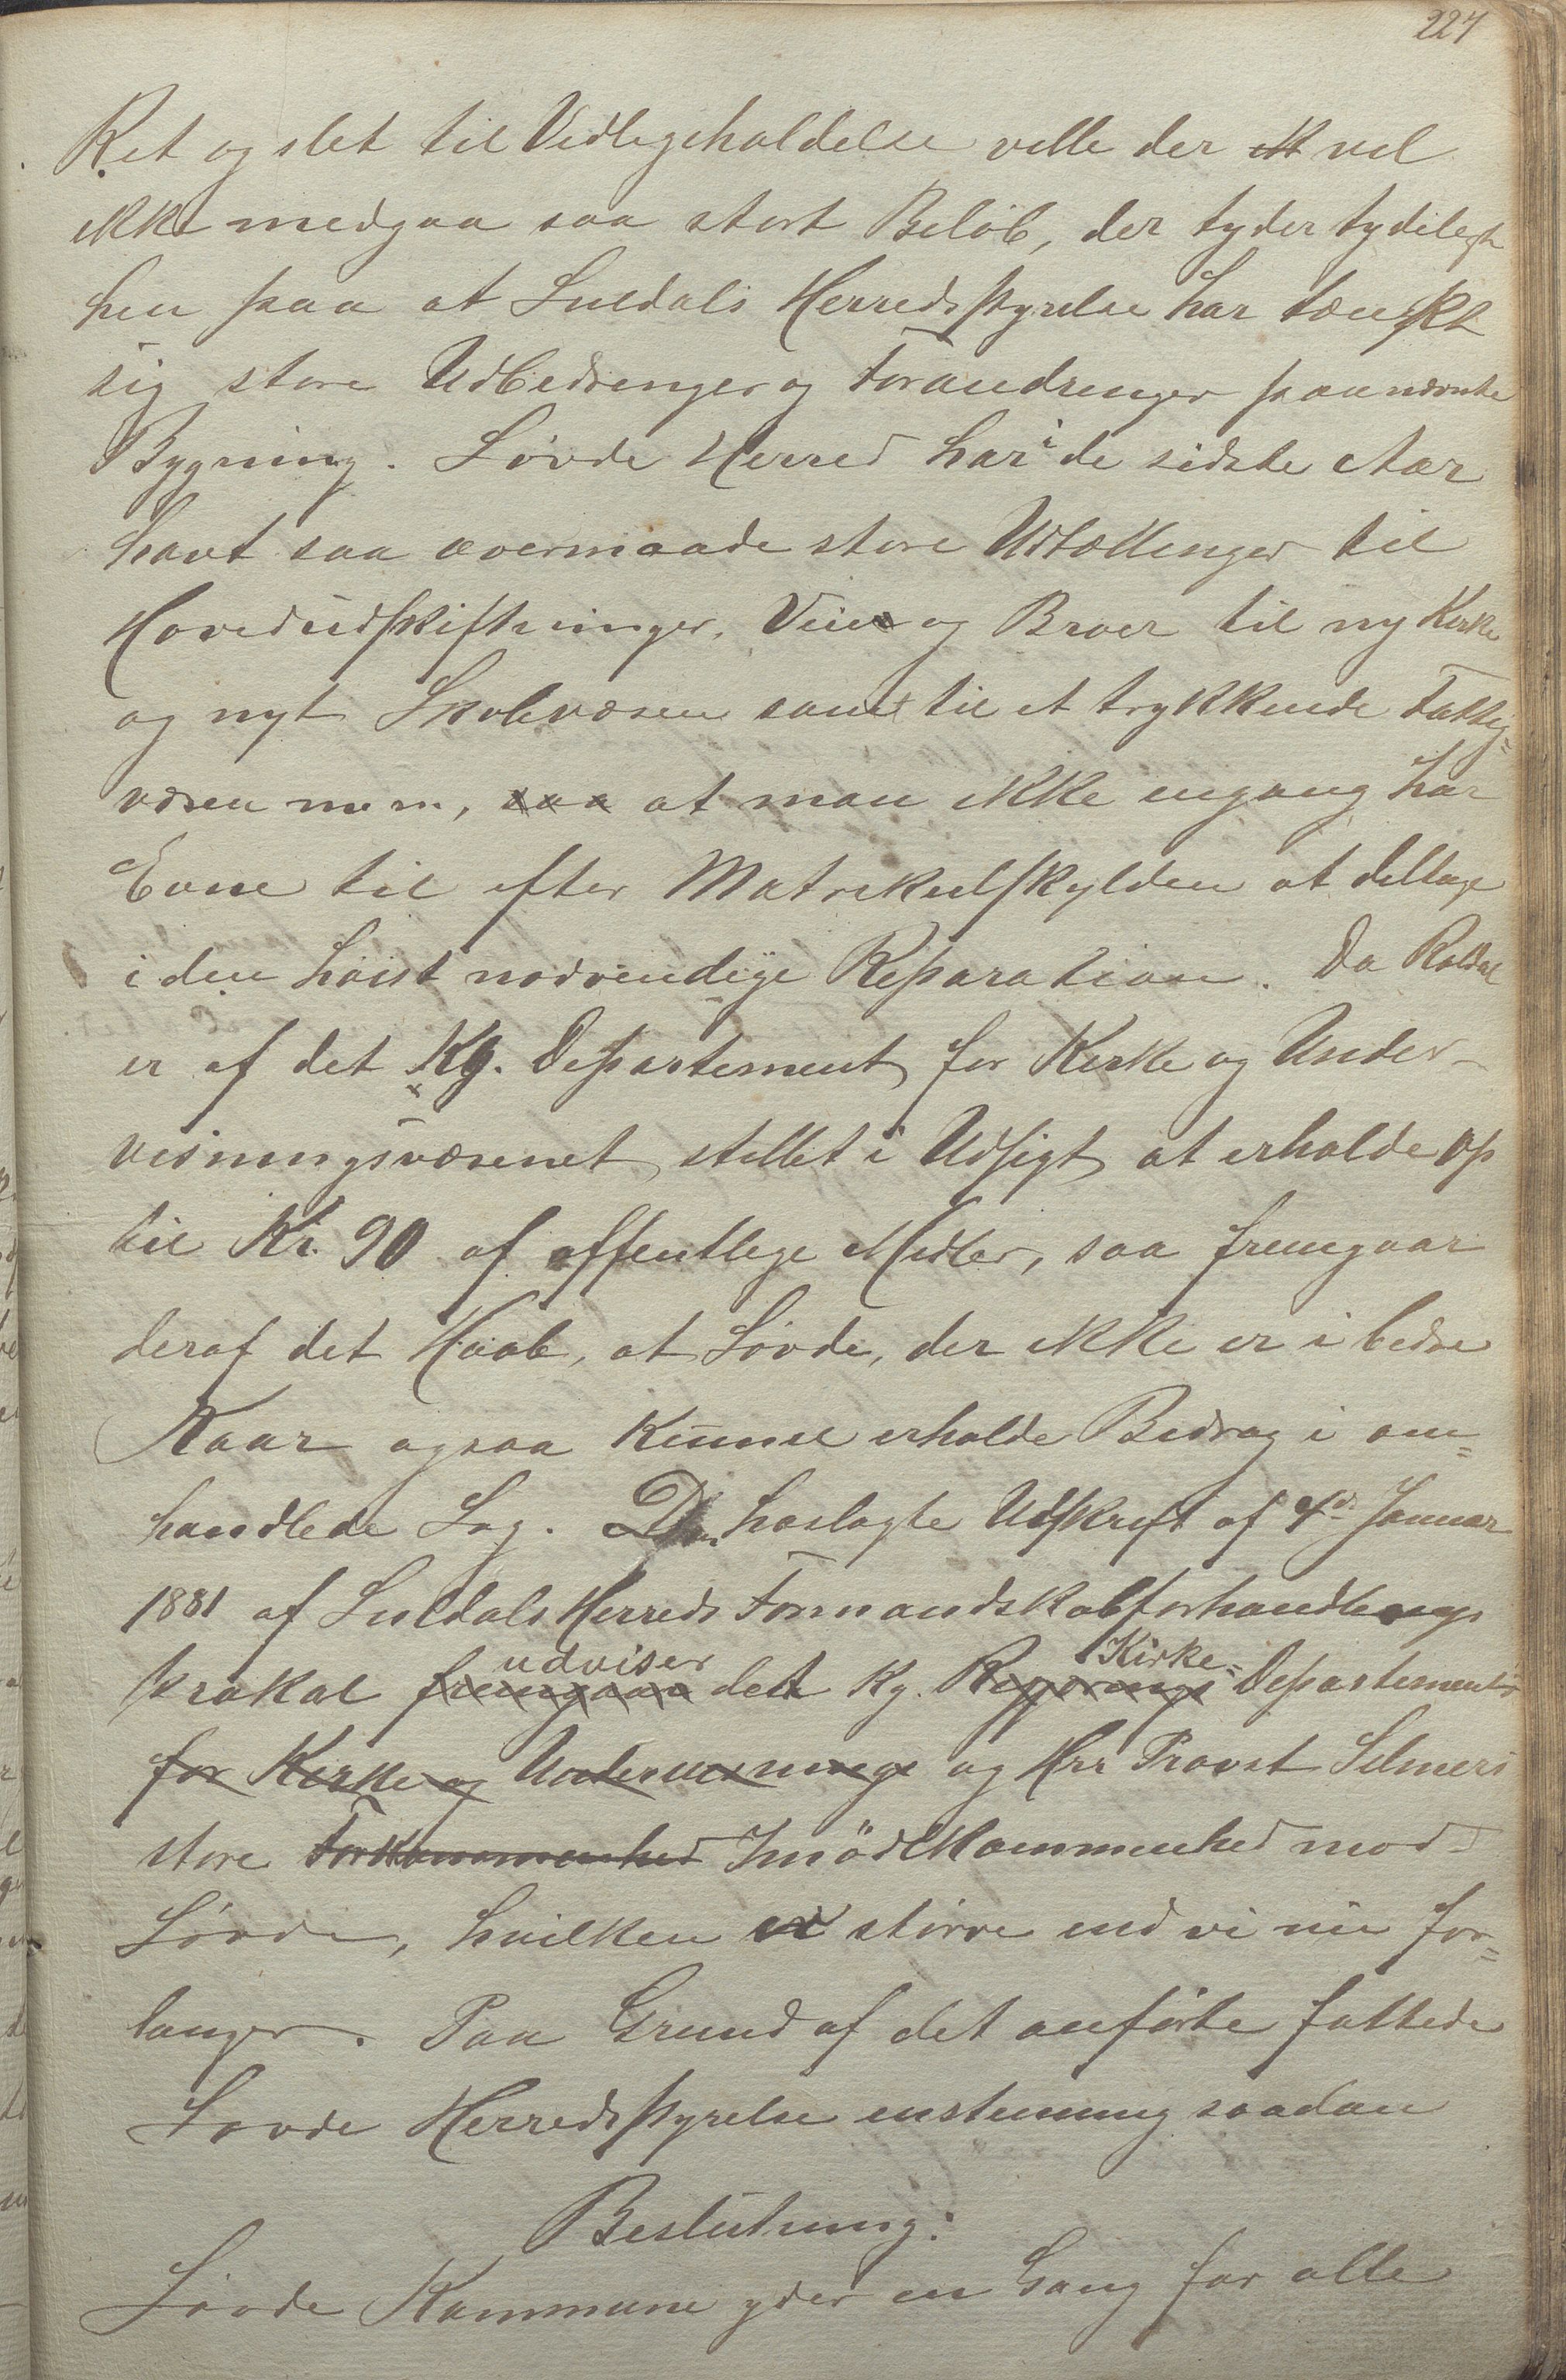 227
Ret og slet til Vedligeholdelse ville der vel
ikke medgaa saa stort Beløb, der tyder tydeligt
hen paa at Suldals Herredsstyrelse har tænkt
sig store Udbedringer og Forandringer paa nævnte
Bygning. Søvde Herred har i de sidste Aar
havt saa overmaade store Udtællinger til
Hovedudskiftninger, Veie og Broer til ny Kirke
og nyt Skolevæsen samt til et trykkende Fattig=
væsen m. m., saa at man ikke engang har
Evne til efter Matrikulskylden at deltage
i den høist nødvendige Reparation. Da Røldal
er af det Kg. Departement for Kirke og Under-
visningsvæsenet stillet i Udsigt at erholde op
til Kr. 90 af offentlige Midler, saa fremgaar
deraf det Haab, at Søvde, der ikke er i bedre
Kaar ogsaa kunne erholde Bidrag i om=
handlede Sag. Den hoslagte Udskrift af 4de Januar
1881 af Suldals Herreds Formandskabsforhandlings
prokol fremgaar udviser det Kg. Regjerings Kirke= Departements
for Kirke og Undervisninge og Hrr Provst Selmers
store Forkommenhed Imødekommenhed mod
Søvde, hvilken er større end vi nu for=
langer. Paa Grund af det anførte fattede
Søvde Herredsstyrelse enstemmig saadan
Beslutning:
Søvde Kommune yder en Gang for alle